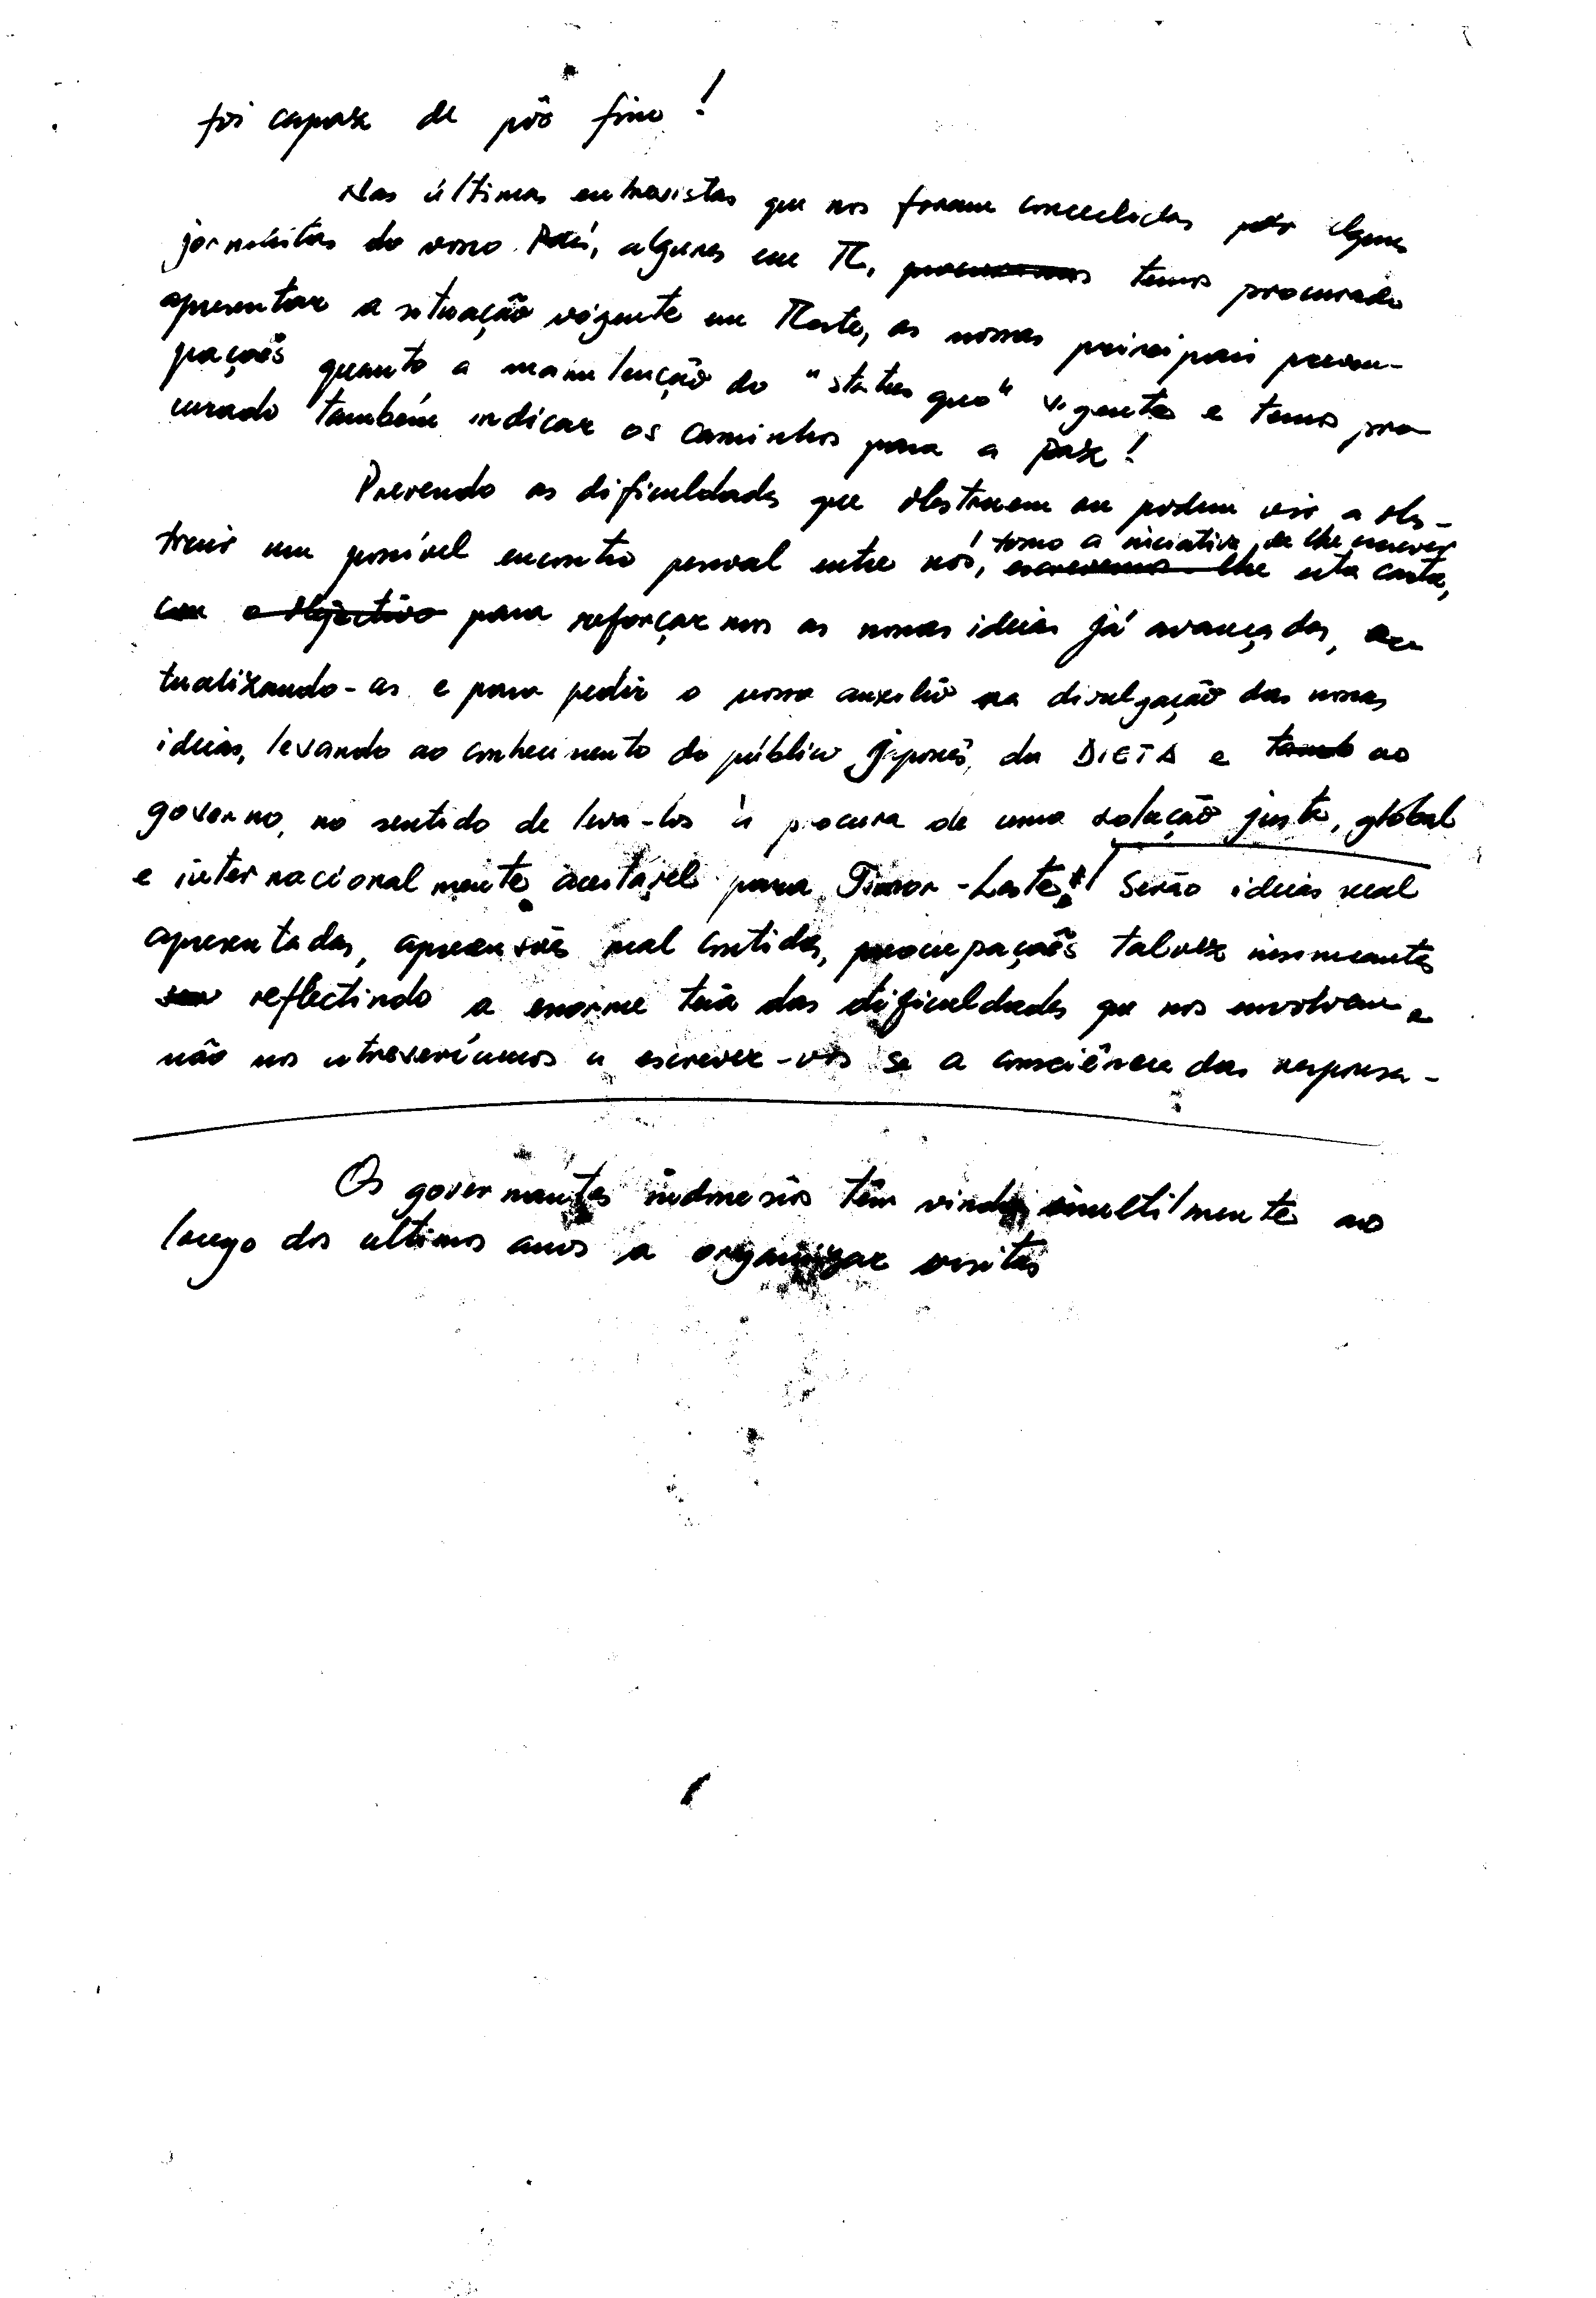 foi capaz de pôr fim!
Nas últimas entrevistas que nos foram concedidas por alguns
jornalistas do vosso País, algures em TL, procuramos temos procurado
apresentar a situação vigente em TLeste, as nossas principais preocu-
pações quanto a manutenção do "status quo" vigente e temos pro
curado também indicar os caminhos para a paz!
Prevendo as dificuldades que obstruem ou podem vir a obs-
truir um possível encontro pessoal entre nós, tomo a iniciativa de lhe escrever
escrevemos-lhe esta carta,
com o objectivo para reforçar-mos as nossas ideias já avançadas, ac
tualizando-as e para pedir o vosso auxílio na divulgação das nossas
ideias, levando ao conhecimento do público japonês, da DIETA e ao
governo, no sentido de leva-los à procura de uma solução justa, global
e internacionalmente aceitável para Timor-Leste! Serão ideias mal
apresentadas, apreensões mal contidas, preocupações talvez
reflectindo a enorme teia das dificuldades que nos envolvem e
não nos atreveríamos a escrever-vos se a consciência das responsa-
Os governantes indonésios têm vindo ao
longo dos ultimos anos a organizar visitas